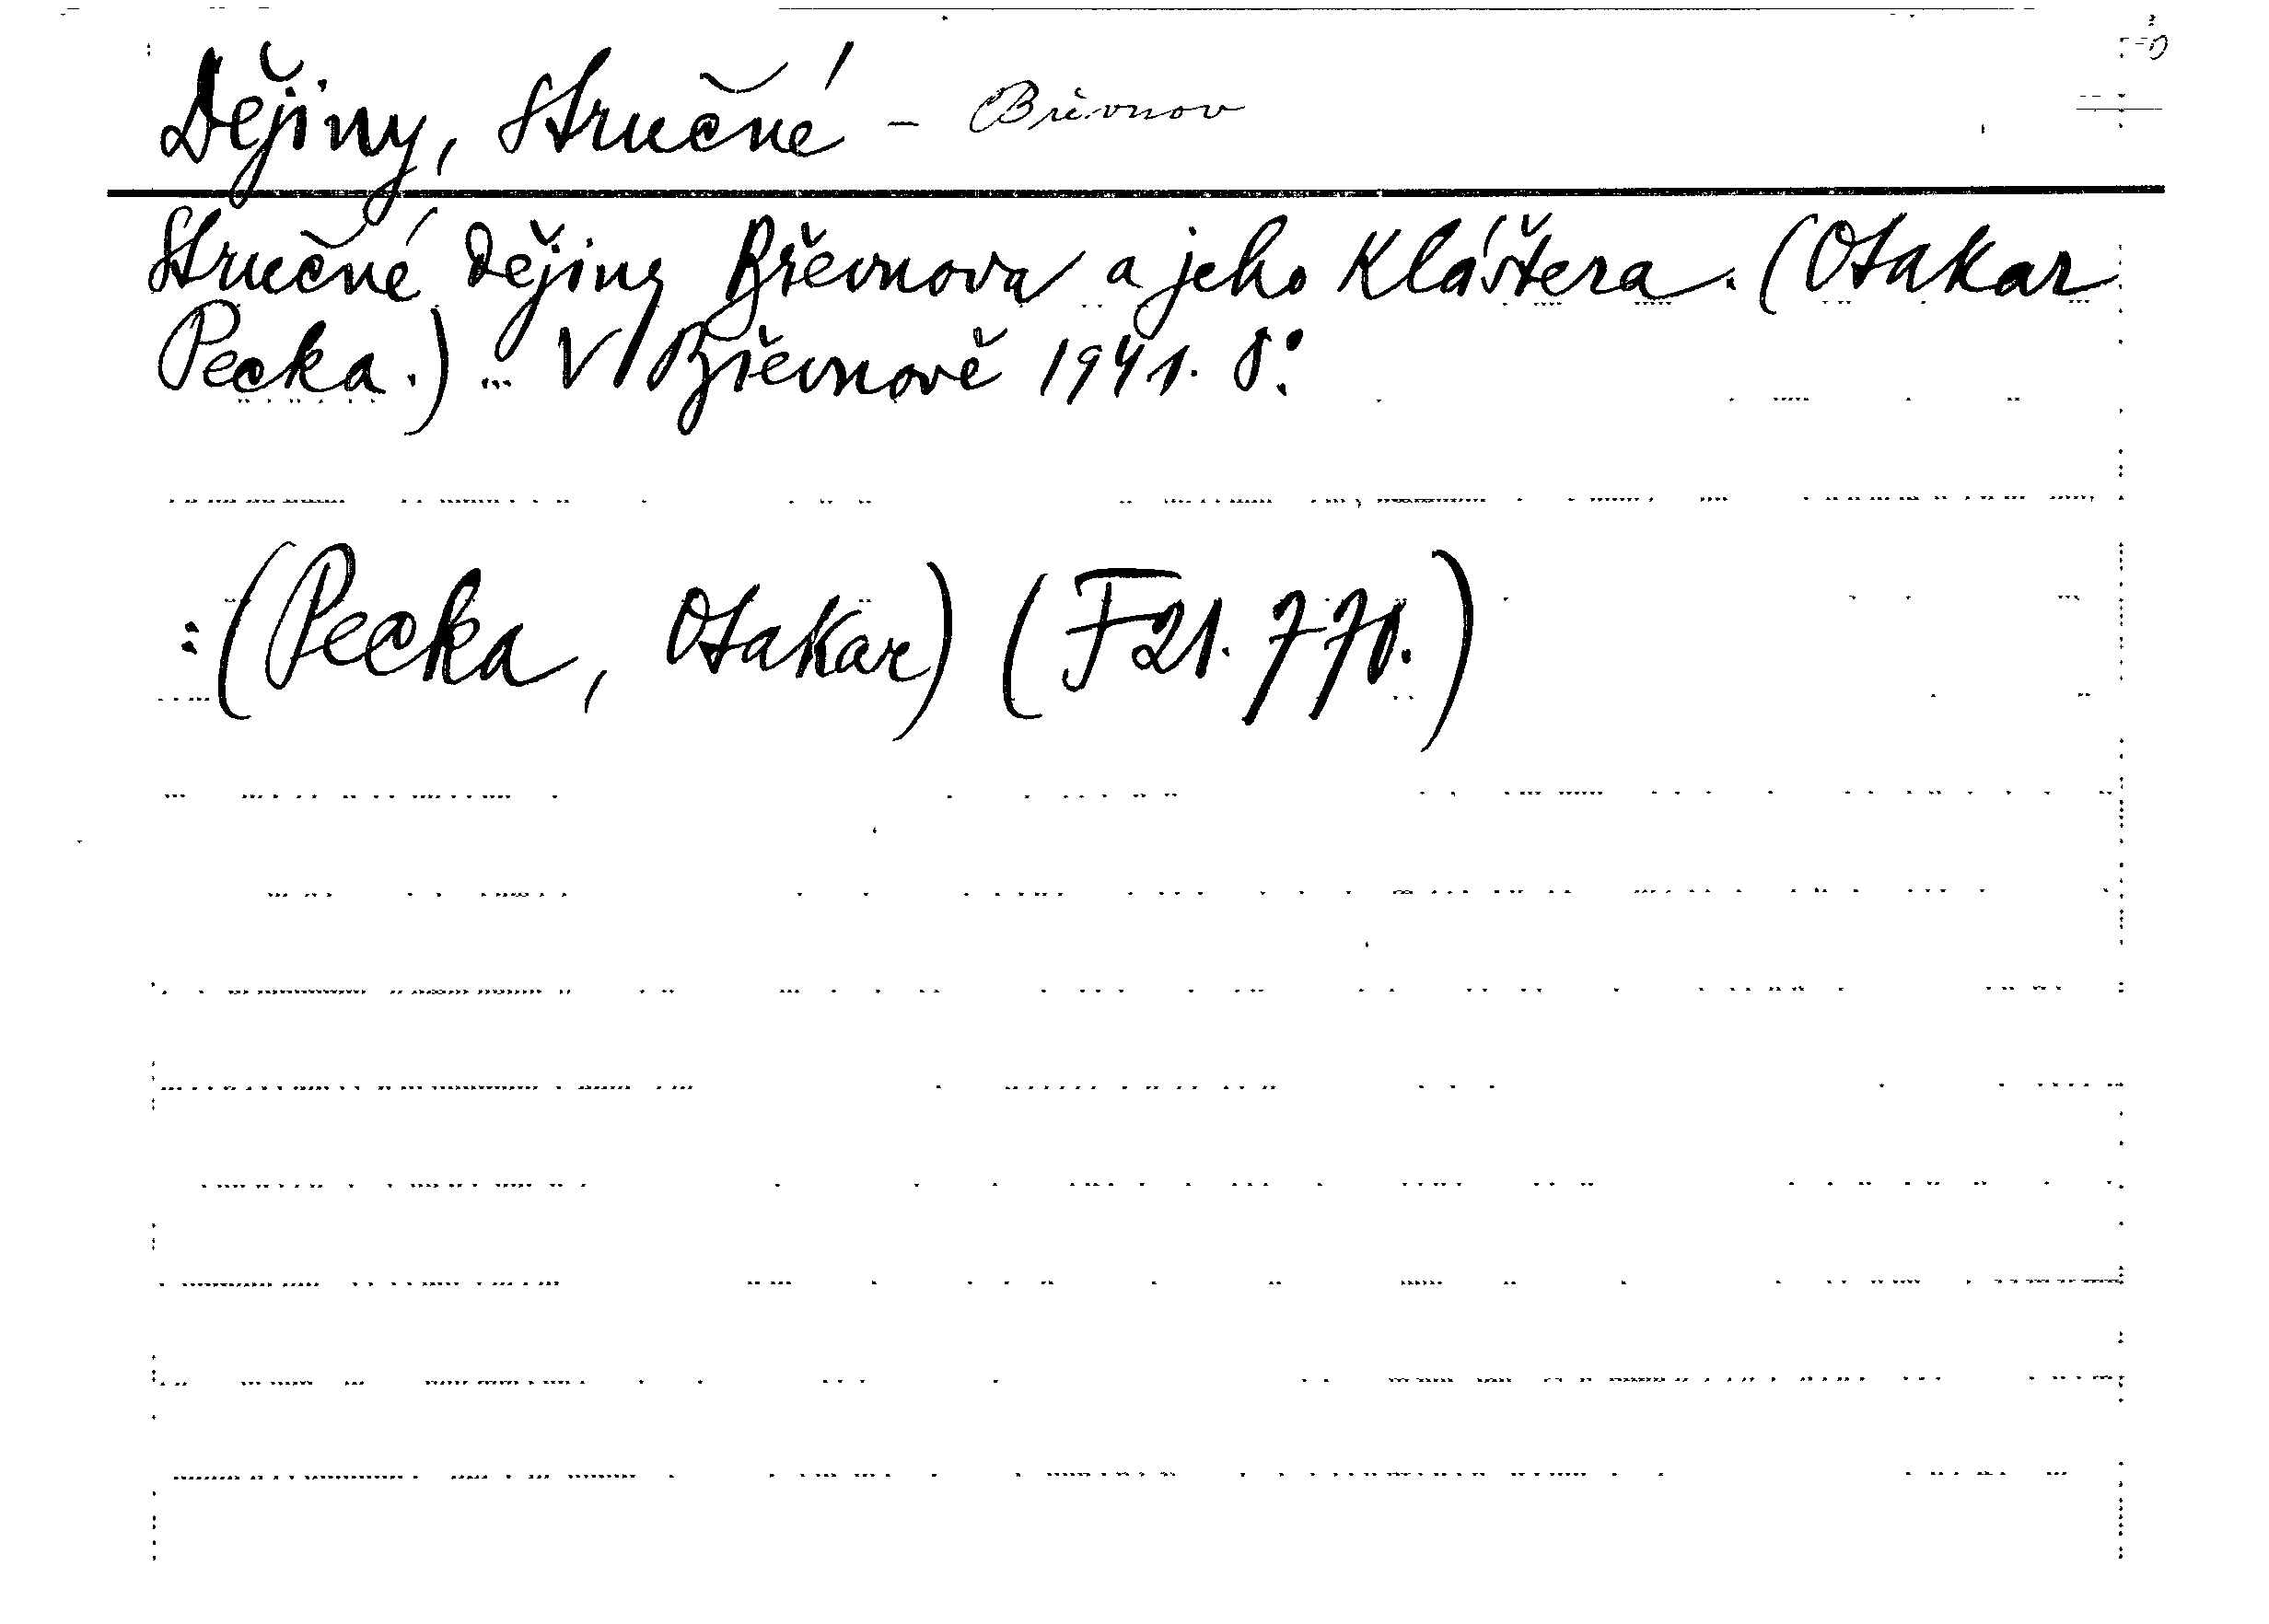 Dějiny, Stručné - Břevnov
Stručné dějiny Břevnova a jeho Kláštera. (Otakar
Pecka.) ... V Břevnově 1941. 8°.
:(Pecka, Otakar) (F21.770.)